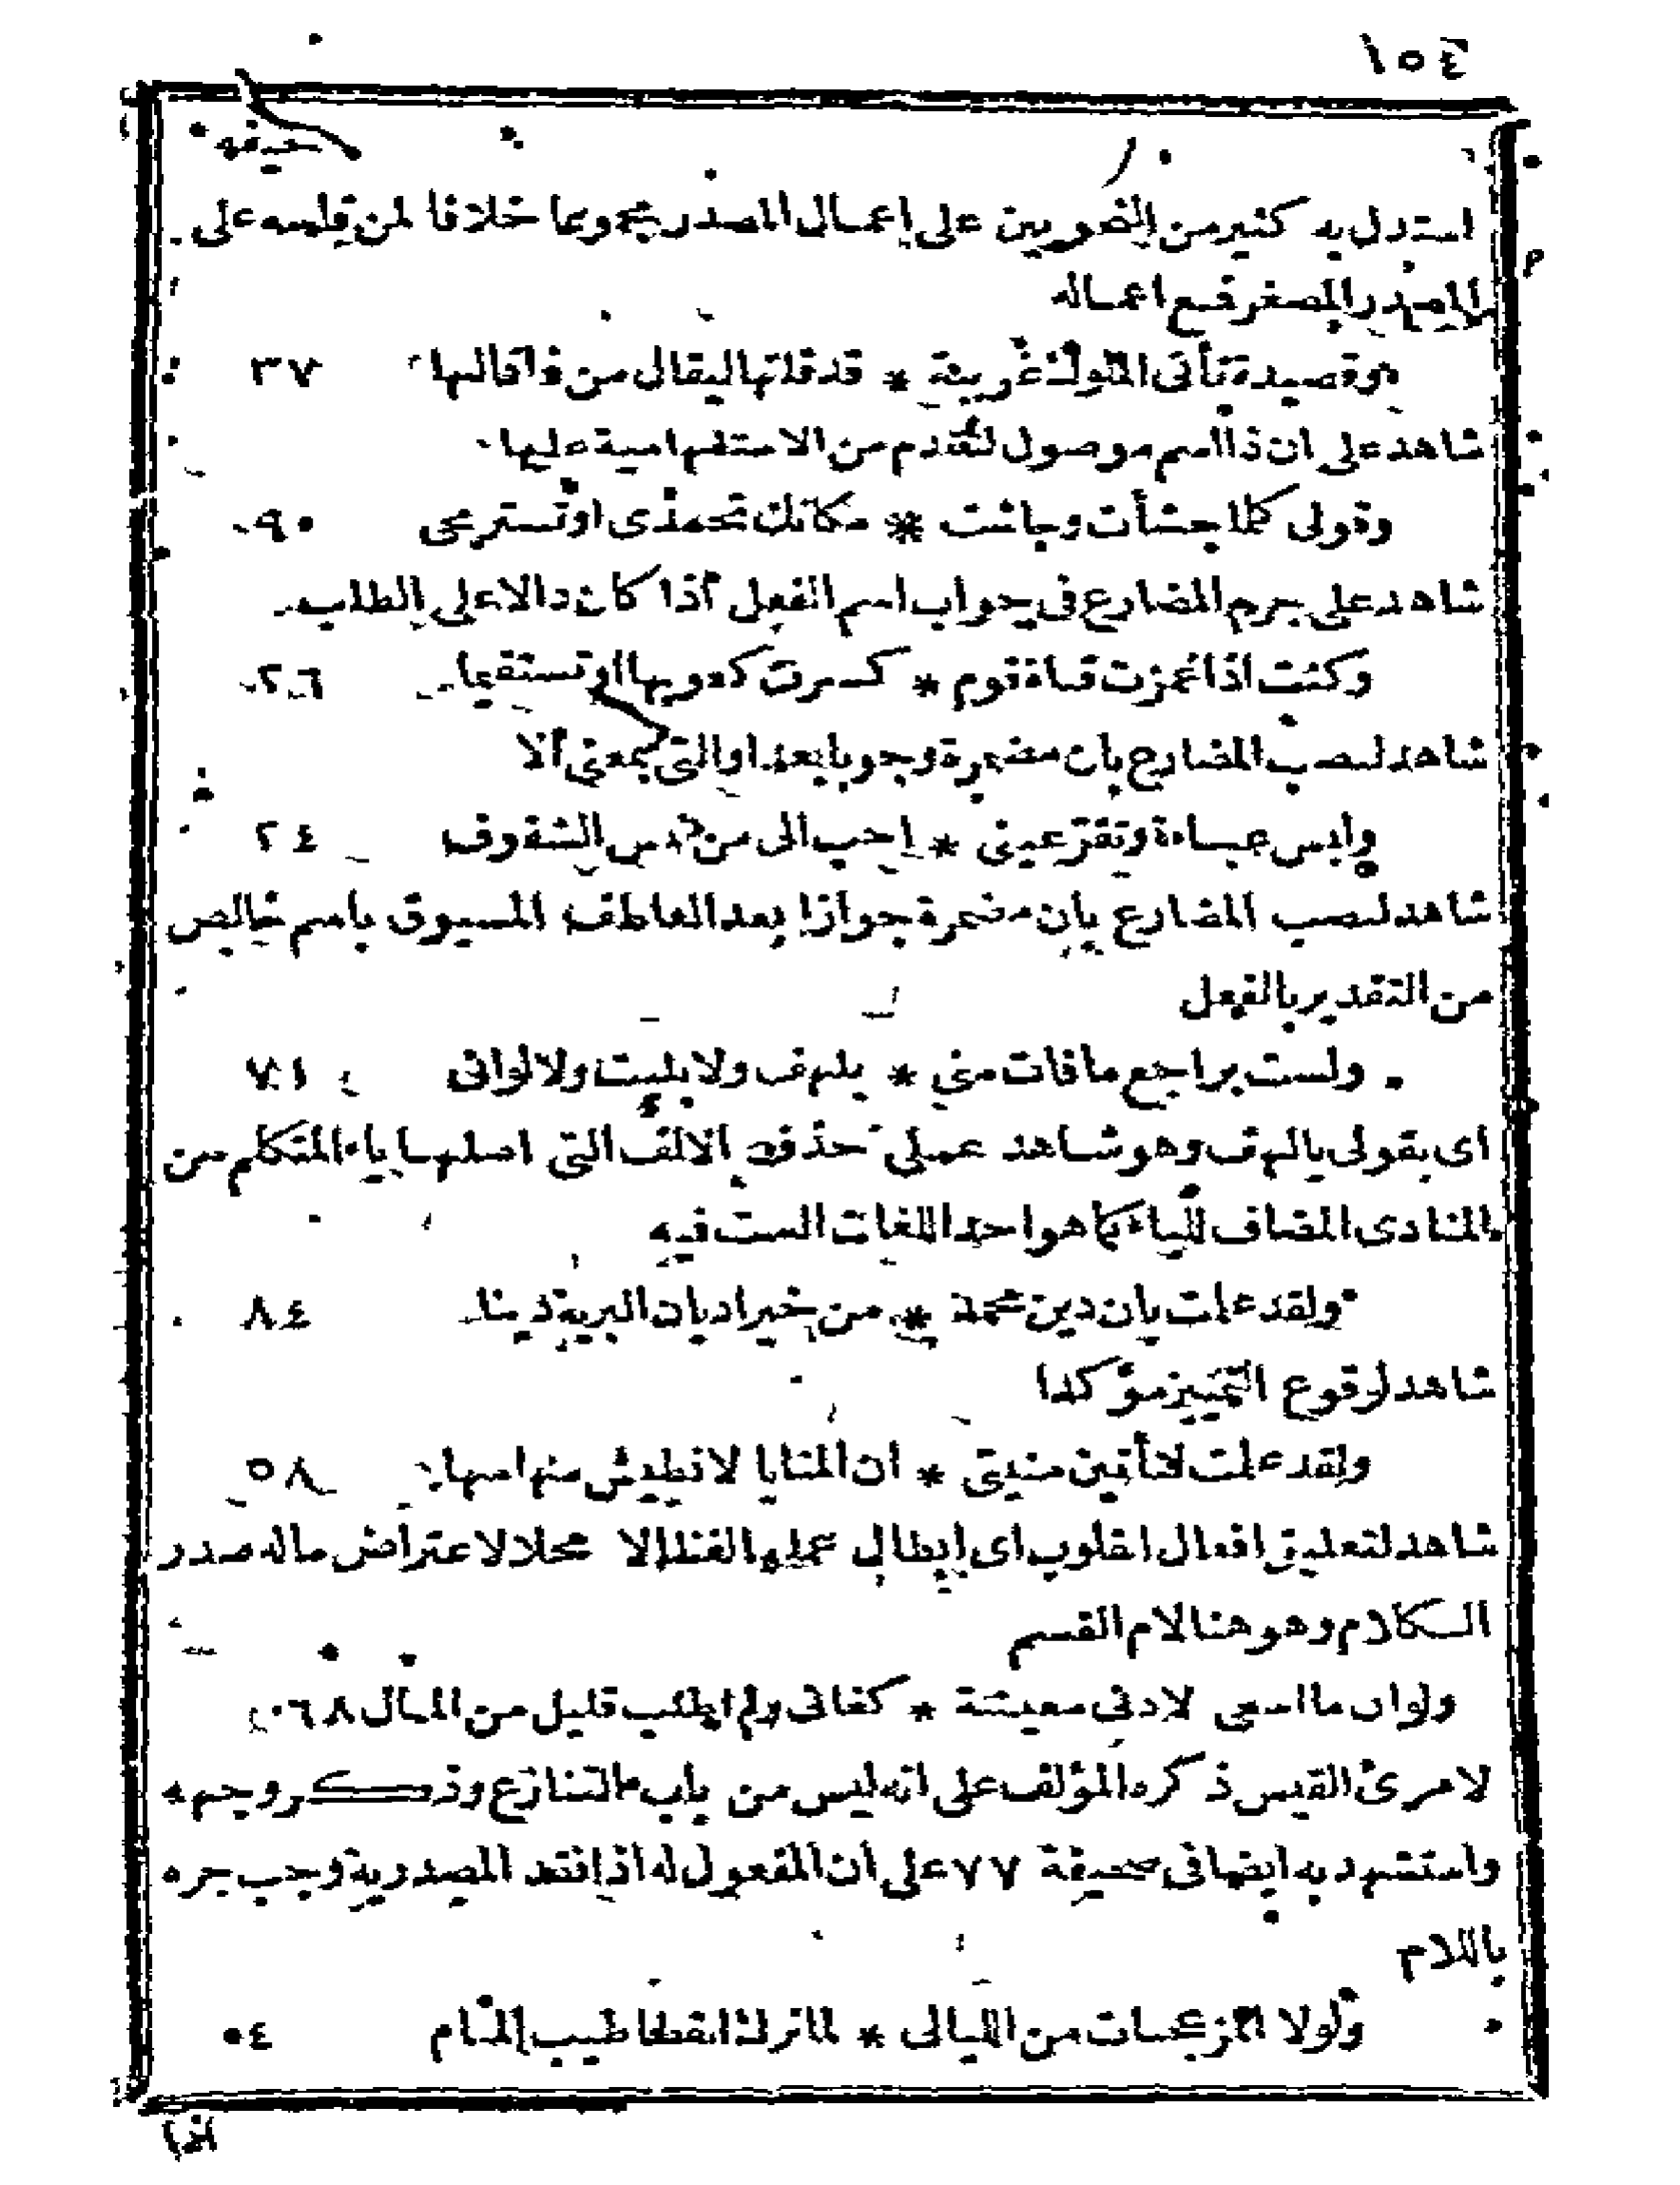 ١٥٤
صحيفه
استدل به كثير من النحويين على إعمال المصدر مجموعا خلافا لمن قاسه على
المصدر المصغر فمنع اعماله
وقصيدة تأتى الملوك غريبة * قد قلتها ليقال من ذا قالها ٣٧
شاهد على ان ذا اسم موصول لتقدم من الاستفهامية عليها
وقولى كلما جشأت وجاشت * مكانك تحمدى او تستريحى ٩٠
شاهد على جزم المضارع فى جواب اسم الفعل اذا كان دالا على الطلب
وكنت اذا غمزت قناة قوم * كسرت كعوبها او تستقيما ٢٦
شاهد لنصب المضارع بان مضمرة وجوبا بعد او التى بمعنى الا
ولبس عباءة وتقر عينى * احب الى من لبس الشفوف ٢٤
شاهد لنصب المضارع بان مضمرة جوازا بعد العاطف المسبوق باسم خالص
من التقدير بالفعل
ولست براجع ما فات منى * بلهف ولا بليت ولا لوانى ٧١
اى بقولى يا لهف وهو شاهد على حذف الالف التى اصلها ياء المتكلم من
المنادى المضاف للياء كما هو احد اللغات الست فيه
ولقد علمت بان دين محمد * من خير اديان البرية دينا ٨٤
شاهد لوقوع التمييز مؤكدا
ولقد علمت لتأتين منيتى * ان المنايا لا تطيش سهامها ٥٨
شاهد لتعليق افعال القلوب اى ابطال عملها لفظا لا محلا لاعتراض ماله صدر
الكلام وهو هنا لام القسم
ولو ان ما اسعى لادنى معيشة * كفانى ولم اطلب قليل من المال ٠٦٨
لامرئ القيس ذكره المؤلف على انه ليس من باب التنازع وذكر وجهه
واستشهد به ايضا فى صحيفة ٧٧ على ان المفعول له اذا فقد المصدرية وجب جره
باللام
ولولا المزعجات من الليالى * لما ترك القطا طيب المنام ٠٤
اذا